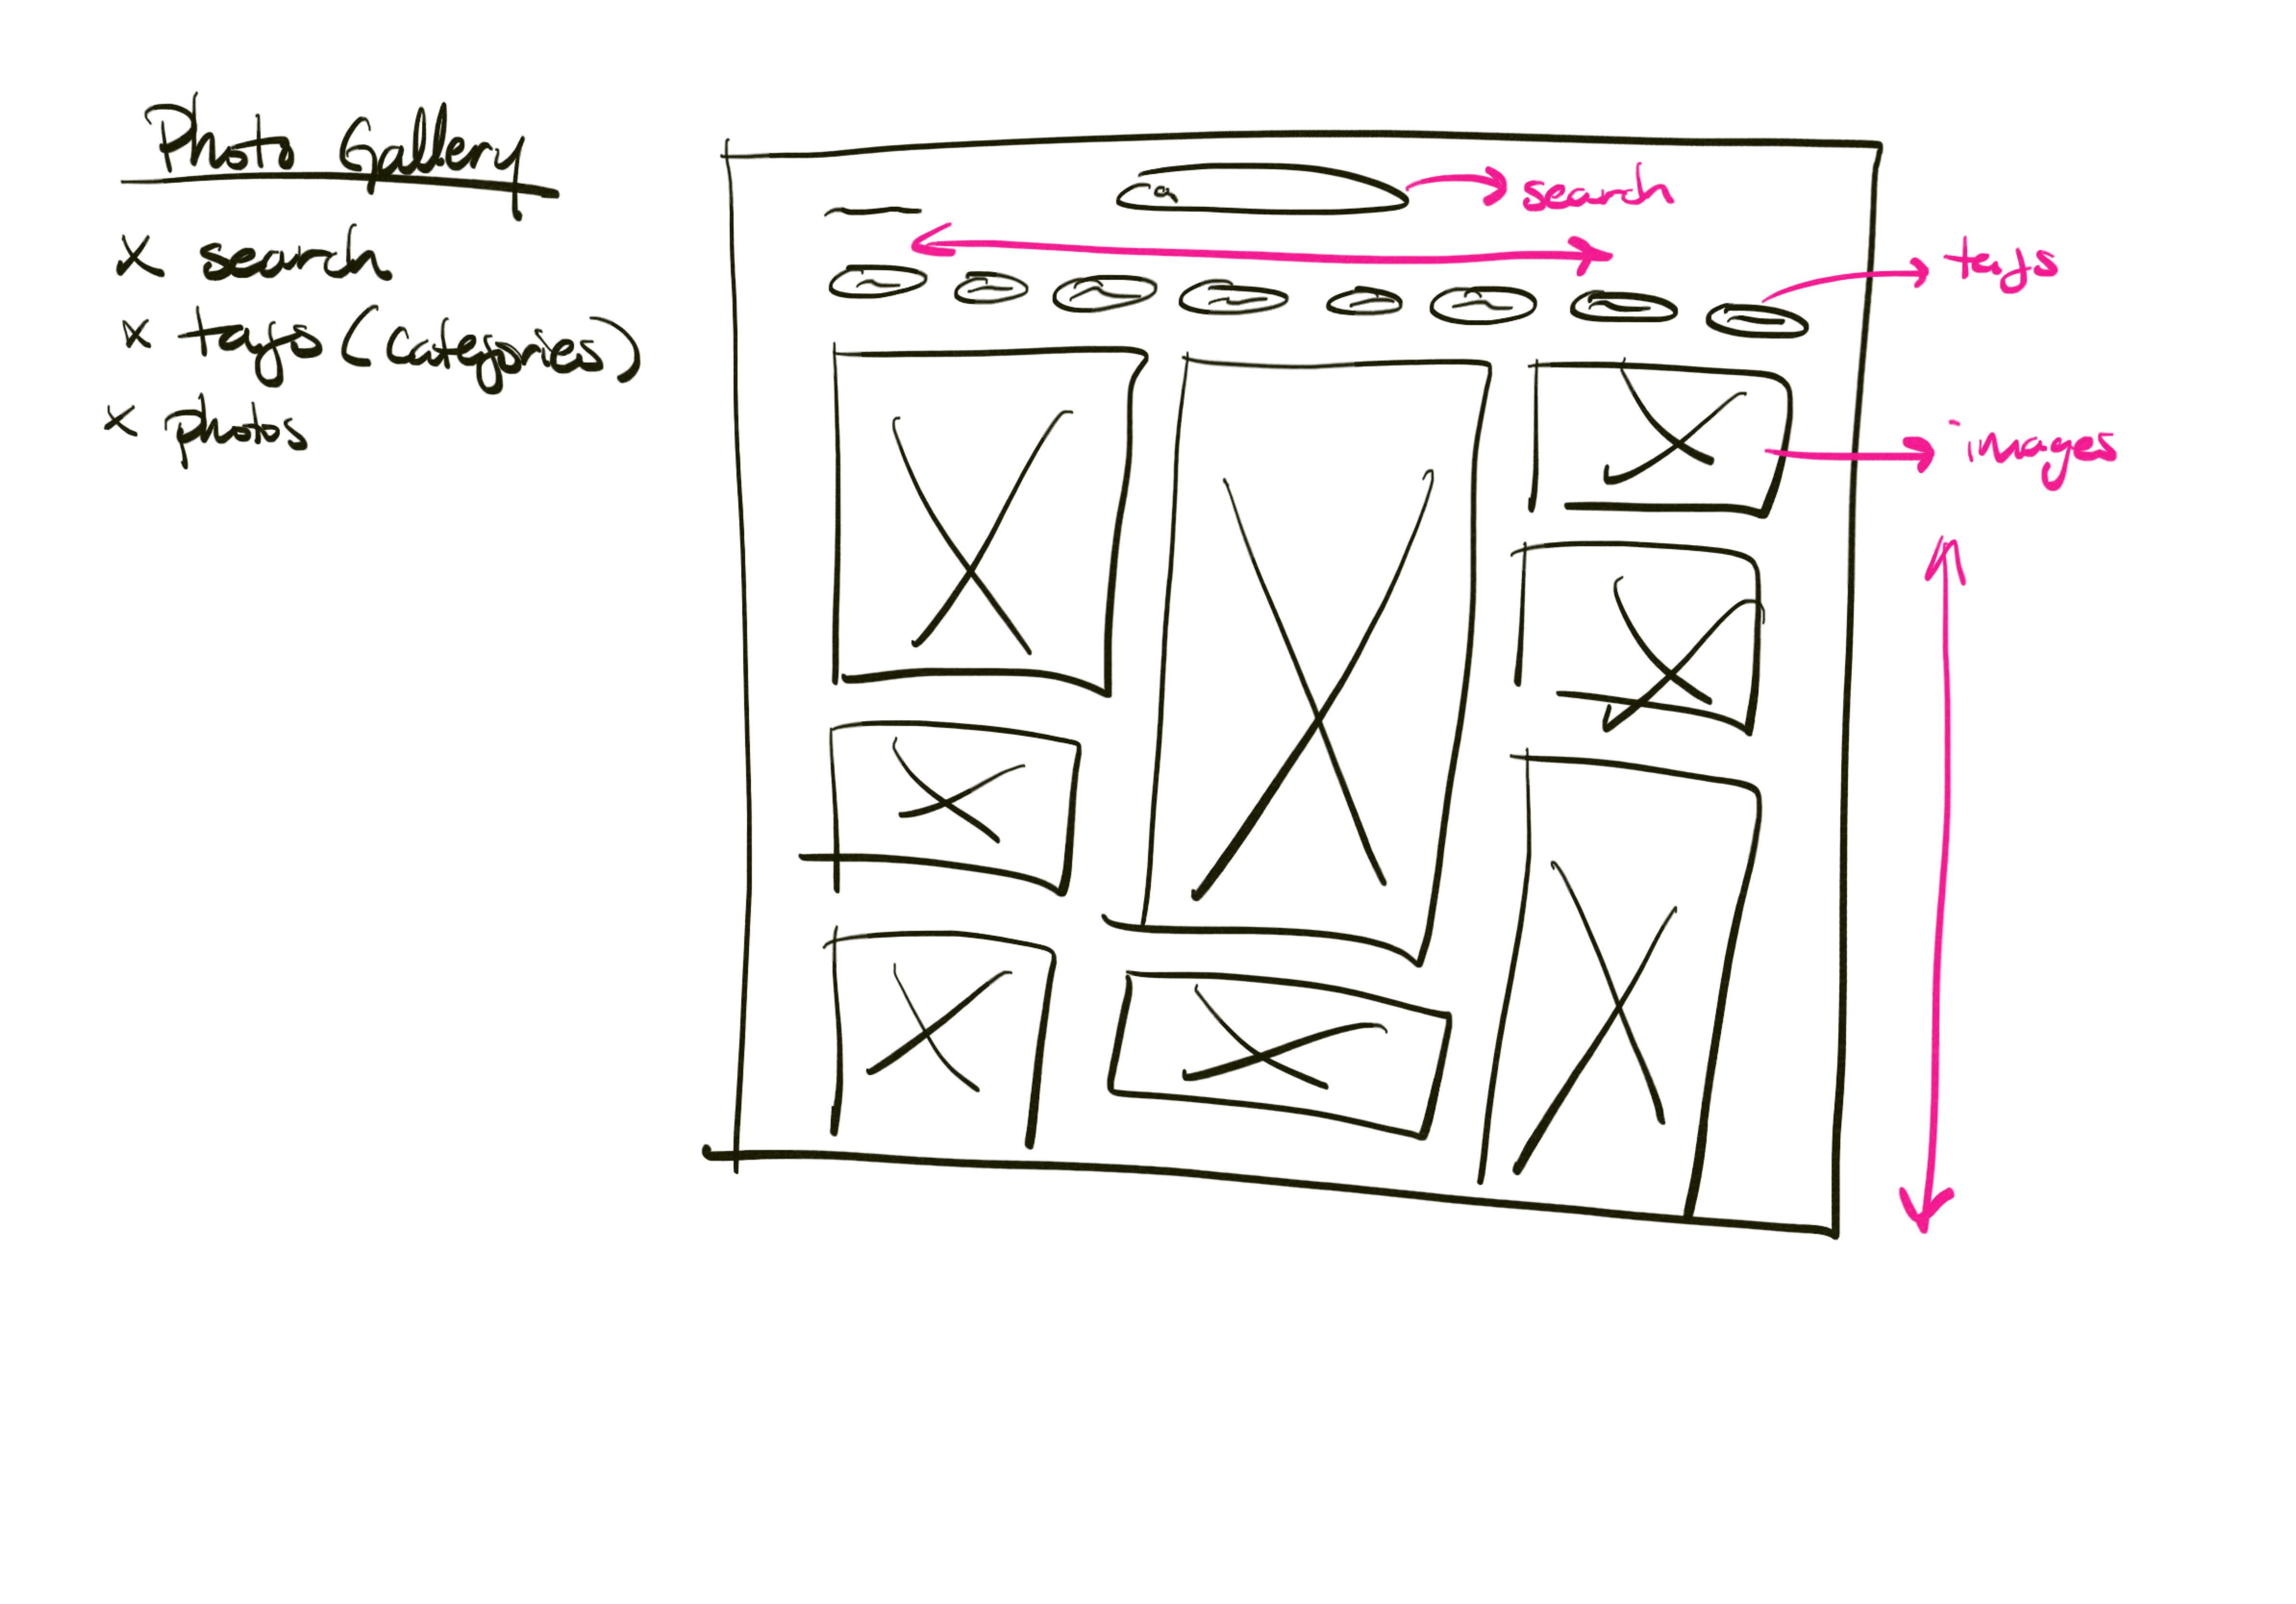 Photo Gallery
x search
x tags (categories)
x photos
search
tags
images